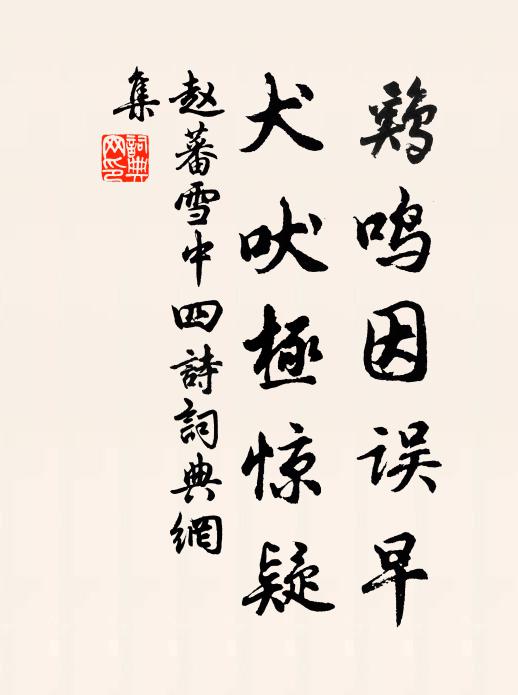 鷄鸣因误早
犬吠極惊疑
赵蕃雪中四詩詞典網
集
詞典網印